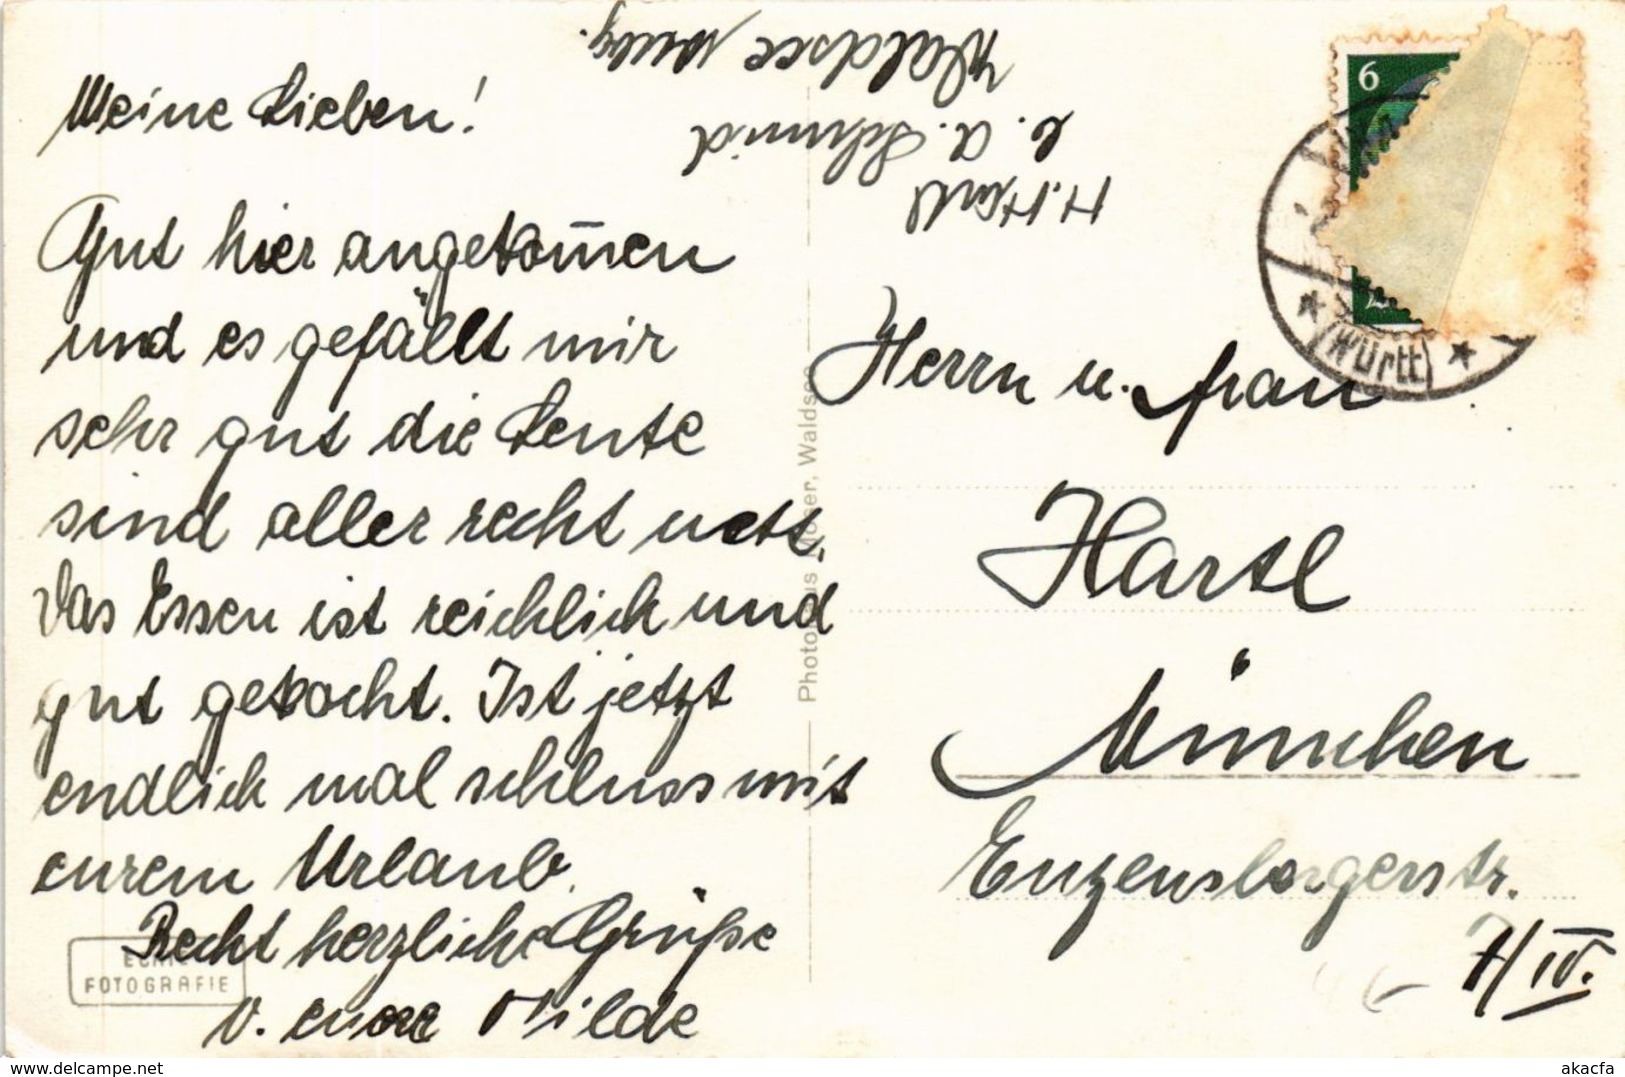 Meine Lieben!
Gut hier angekom̄en
und es gefällt mir
sehr gut die Leute
sind aller recht nett.
Das Essen ist reichlich und
gut gekocht. Ist jetzt
endlich mal schluss mit
eurem Urlaub.
Recht herzliche Grüße
v. eurer Hilde
ECHTE
FOTOGRAFIE
H. Hartl
b. A. Schmid
Waldsee
Photohaus Moser, Waldsee
6
(Württ)
Herrn u. Frau
Hartl
München
Enzenspergerstr.
7/IV.
www.delcampe.net
akacfa